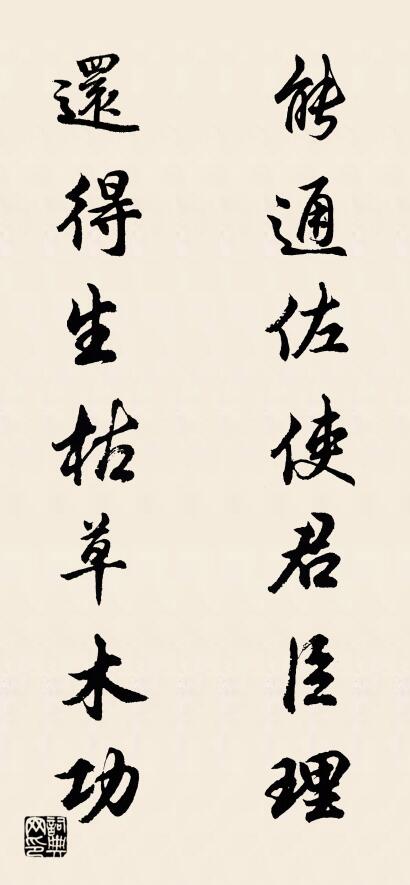 能通佐使君臣理
還得生枯草木功
詞典網印